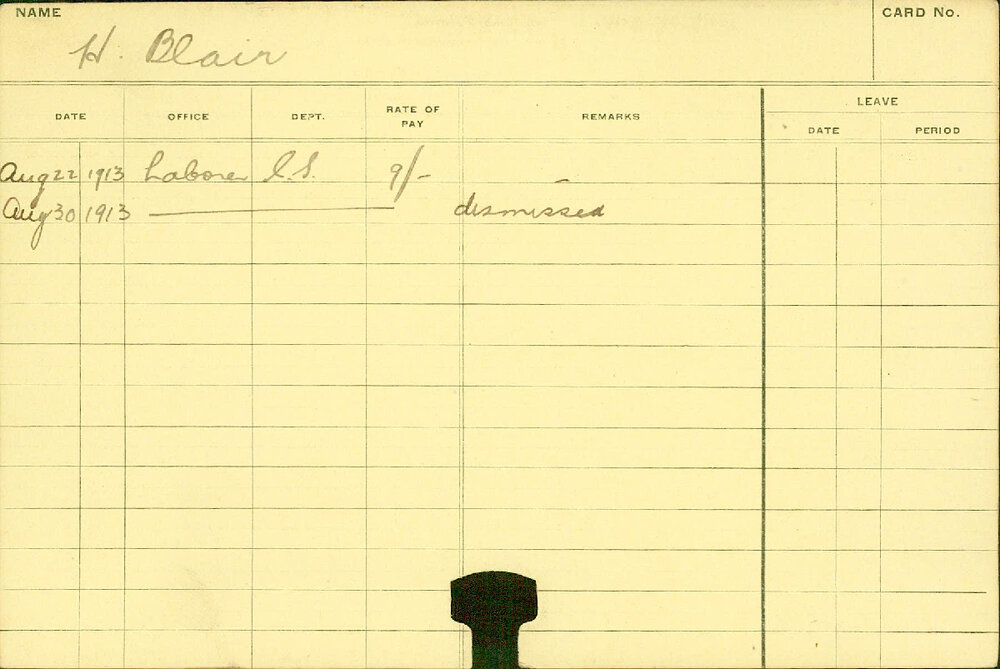 NAME
CARD No.
H. Blair
DATE OFFICE DEPT. RATE OF PAY REMARKS LEAVE
DATE PERIOD
Aug 22 1913 Laborer C.S. 9/- –
Aug 30 1913 dismissed